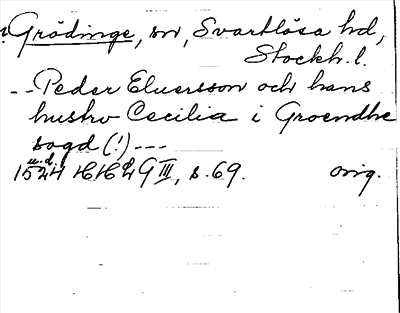 Grödinge, sn, Svartlösa hd,
Stockh. l.
-- Peder Eluersson och hans
hustrv Cecilia i Groendhe
sogd (!) ---
u.d.
1524 HH G III, s. 69. orig.